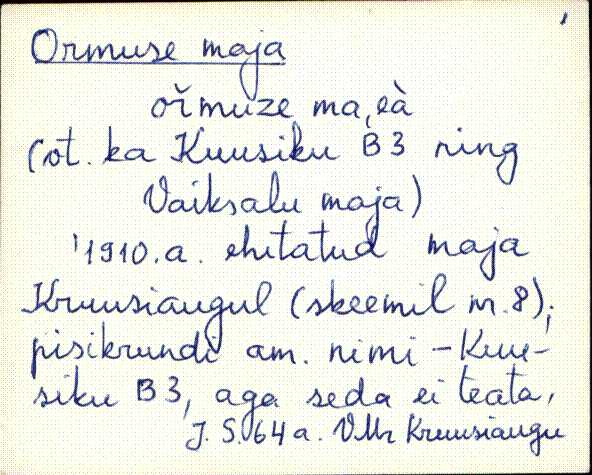 Ormuse maja
ořmuze ma,eà
(vt. ka Kuusiku B3 ning
Vaiksalu maja)
1910.a. ehitatud maja
Kruusiaugul (skeemil nr. 8);
pisikrundi am. nimi – Kuu-
siku B3, aga seda ei teata,
J. S. 64 a. VMr Kruusiaugu